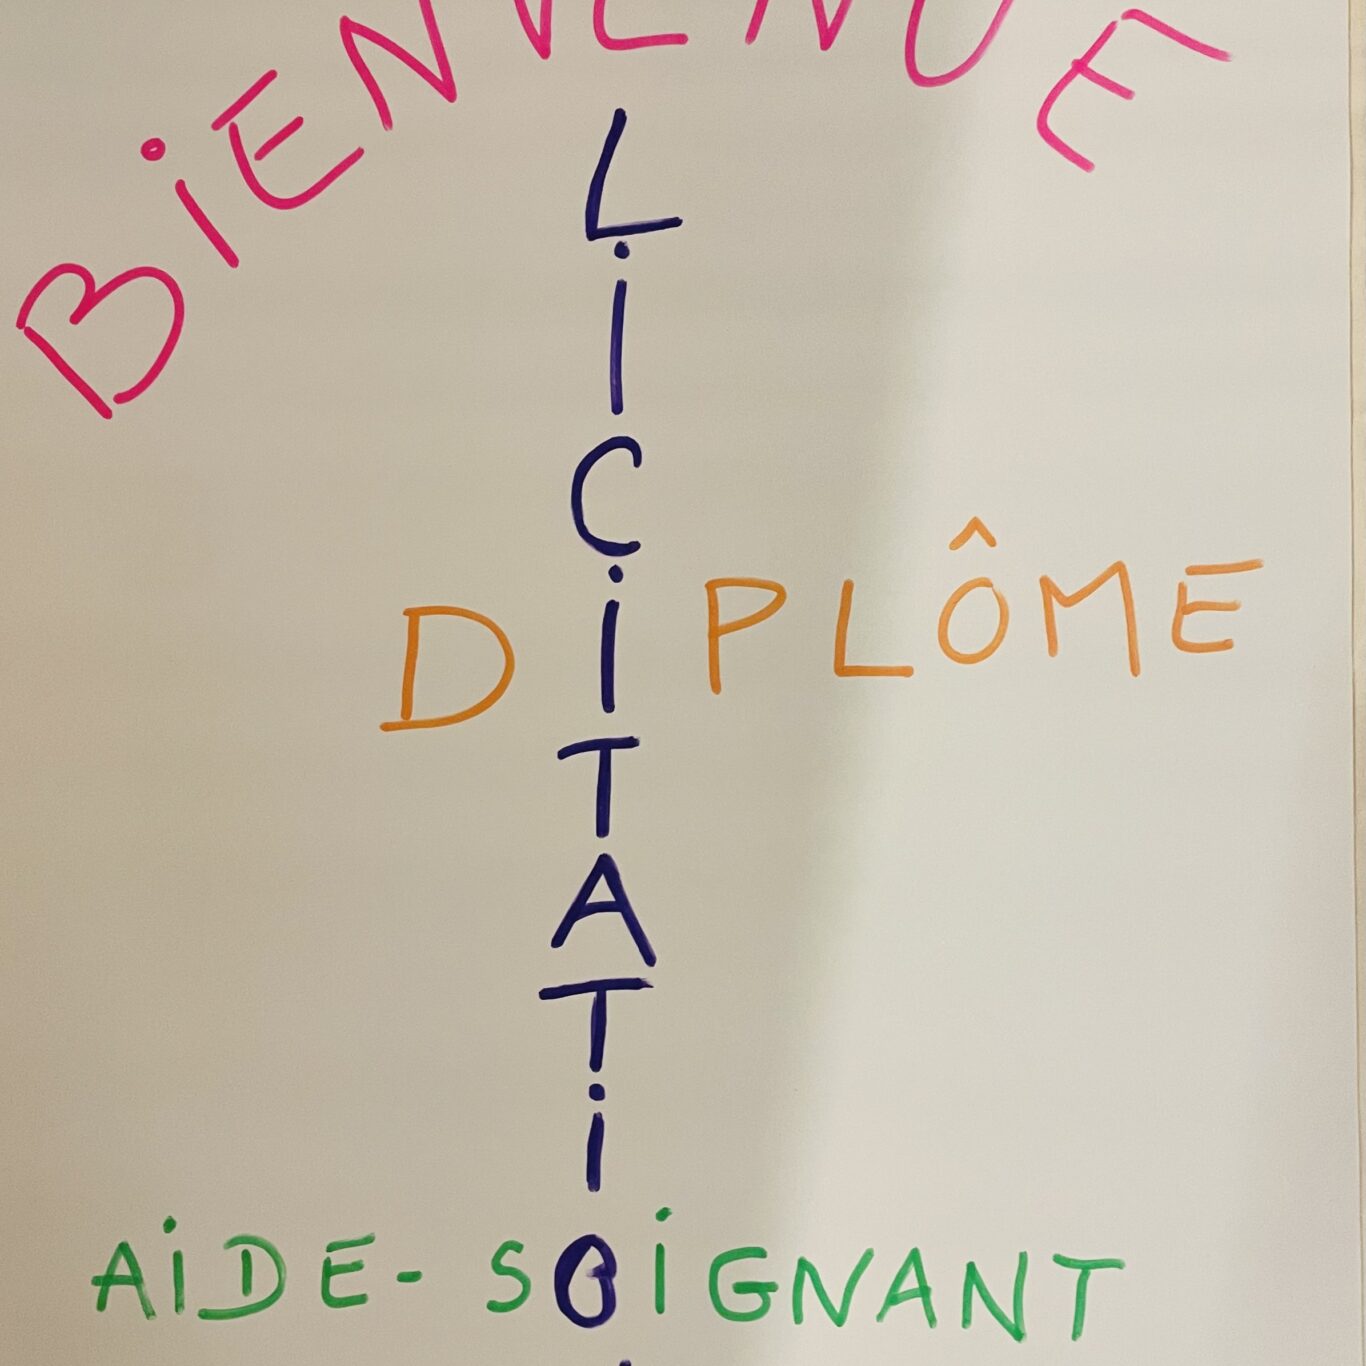 BiENVENUE
LiCiTATiO
DiPLÔME
AiDE-SOiGNANT